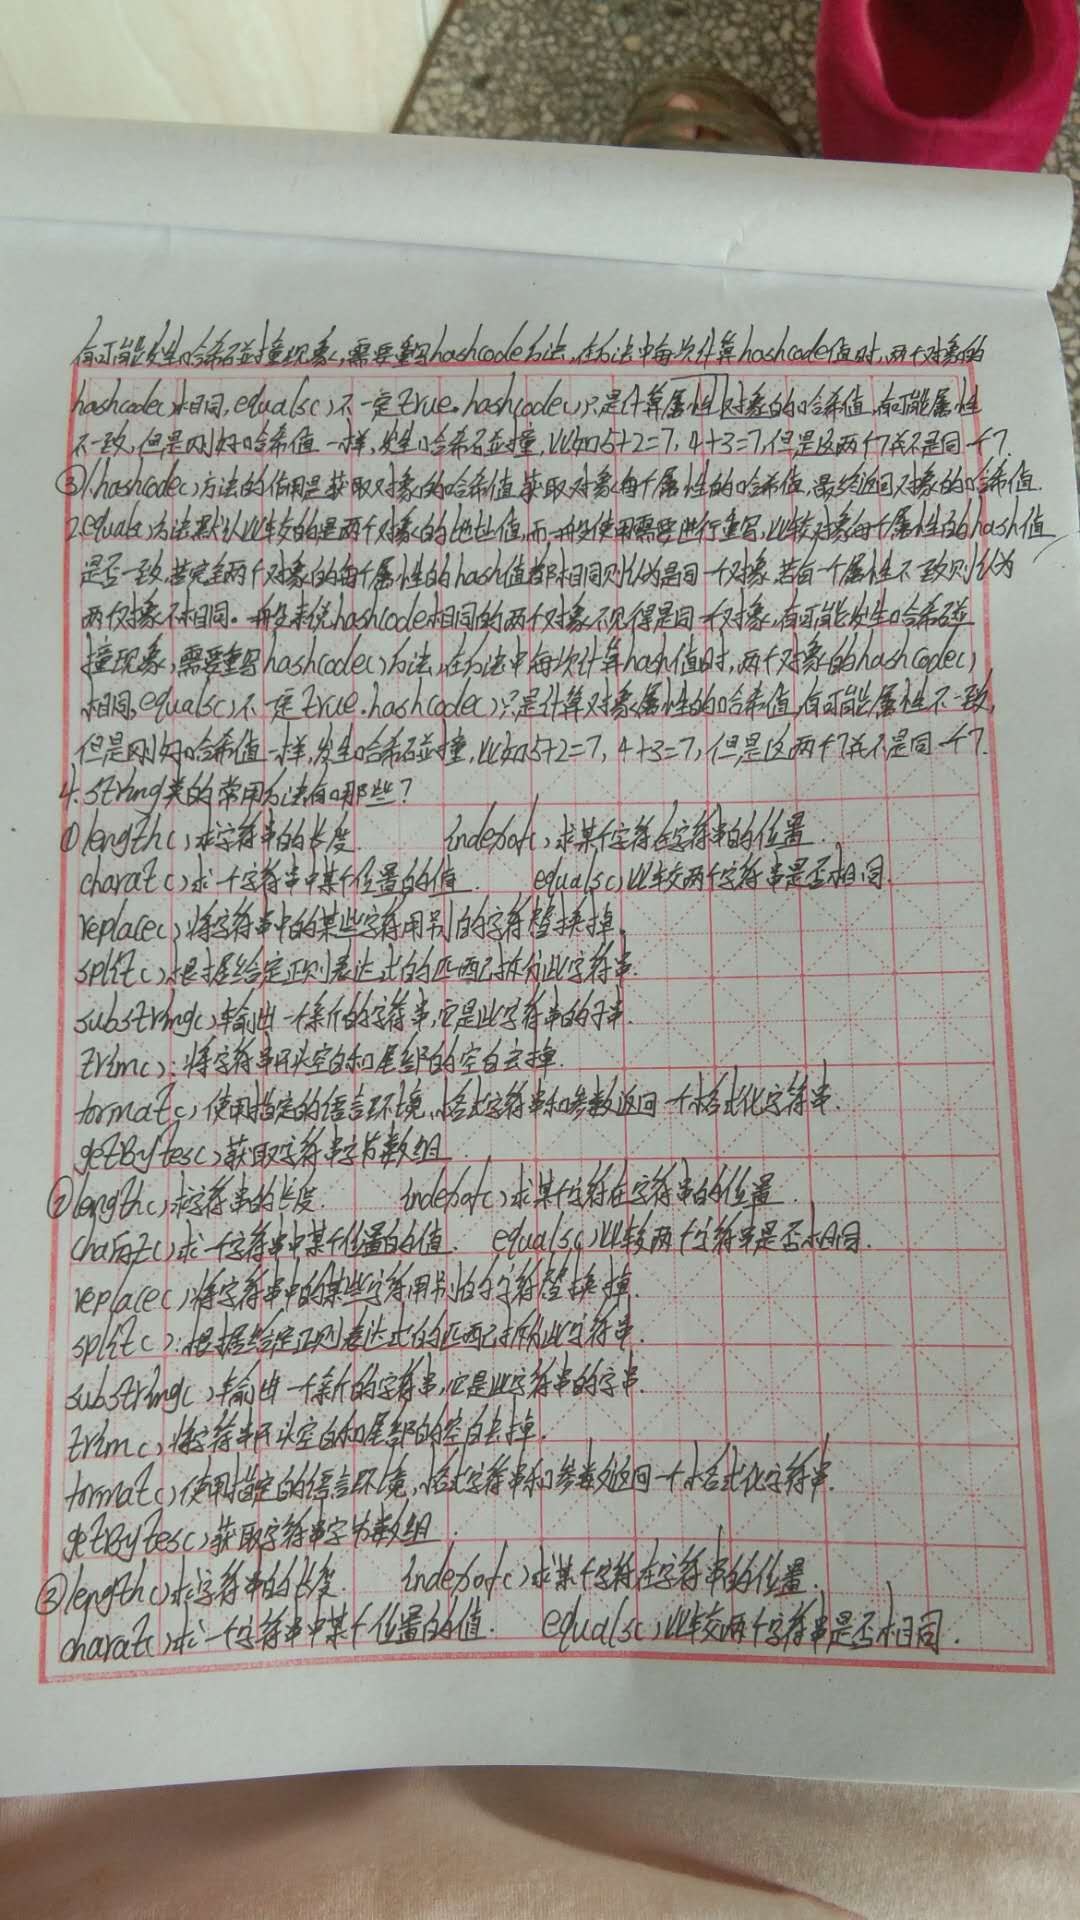 有可能发生哈希碰撞现象,需要重写hashcode方法,在方法中每次计算hashcode值时,两个对象的
hashcode()相同,equals()不一定true。hashcode()只是计算属性对象的哈希值,有可能属性
不一致,但是刚好哈希值一样,发生哈希碰撞,比如5+2=7,4+3=7,但是这两个7并不是同一个7.
③1.hashcode()方法的作用是获取对象的哈希值,获取对象每个属性的哈希值,最终返回对象的哈希值.
2.equals()方法默认比较的是两个对象的地址值,而一般使用需要进行重写,比较对象每个属性的hash值
是否一致,若完全两个对象的每个属性的hash值都相同则认为是同一个对象,若有一个属性不一致则认为
两个对象不相同。一般来说hashcode相同的两个对象不见得是同一个对象,有可能发生哈希碰
撞现象,需要重写hashcode()方法,在方法中每次计算hash值时,两个对象的hashcode()
相同,equals()不一定true.hashcode()只是计算对象属性的哈希值,有可能属性不一致,
但是刚好哈希值一样,发生哈希碰撞,比如5+2=7,4+3=7,但是这两个7并不是同一个7.
4.String类的常用方法有哪些?
①length()求字符串的长度. indexof()求某个字符在字符串的位置.
charat()求一个字符串中某个位置的值. equals()比较两个字符串是否相同.
replace()将字符串中的某些字符用别的字符替换掉.
split()根据给定正则表达式的匹配拆分此字符串.
substring()输出一个新的字符串,它是此字符串的子串.
trim():将字符串开头空白和尾部的空白去掉.
format()使用指定的语言环境,格式字符串和参数返回一个格式化字符串.
getBytes()获取字符串字节数组.
②length()求字符串的长度. indexof()求某个字符在字符串的位置.
charat()求一个字符串中某个位置的值. equals()比较两个字符串是否相同.
replace()将字符串中的某些字符用别的字符替换掉.
split():根据给定正则表达式的匹配拆分此字符串.
substring()输出一个新的字符串,它是此字符串的字串.
trim()将字符串开头空白和尾部的空白去掉.
format()使用指定的语言环境,格式字符串和参数返回一个格式化字符串.
getBytes()获取字符串字节数组.
③length()求字符串的长度. indexof()求某个字符在字符串的位置.
charat()求一个字符串中某个位置的值. equals()比较两个字符串是否相同.